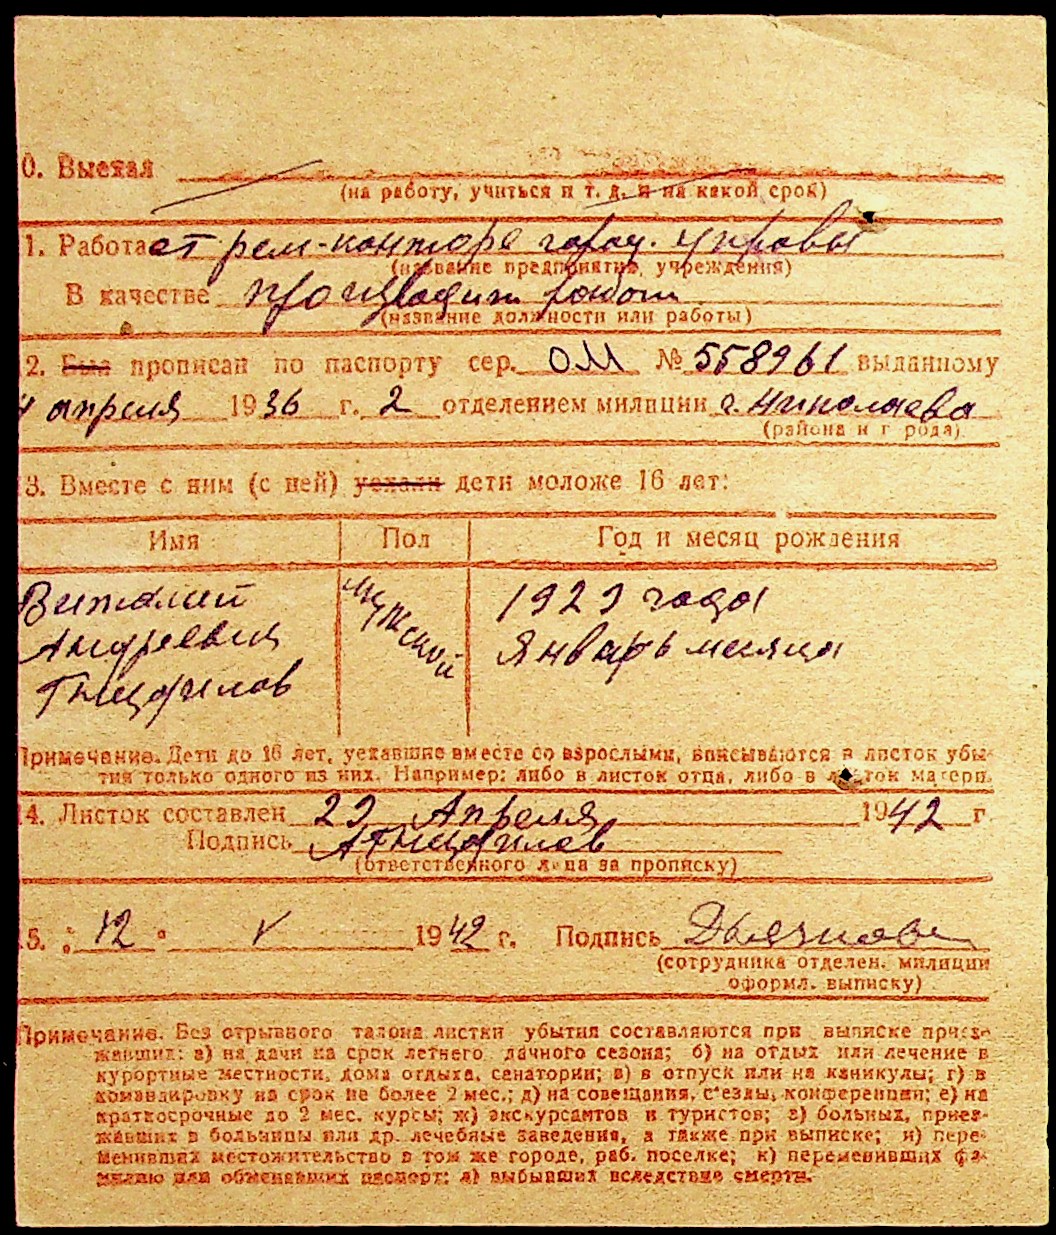 0. Выехал
(на работу, учиться и т. д. и на какой срок)
1. Работает рем-конторе город. управы
(название предприятия, учреждения)
В качестве производит. работ
(название должности или работы)
2. Был прописан по паспорту сер. ОМ № 558961 выданному
4 апреля 1936 г. 2 отделением милиции г. Николаева
(района и г рода)
3. Вместе с ним (с ней) уехали дети моложе 16 лет:
Имя Пол Год и месяц рождения
Виталий мужской 1929 года
Андреевич Январь месяца
Примечание. Дети до 16 лет, уехавшие вместе со взрослыми, вписываются в листок убы-
тия только одного из них. Например: либо в листок отца, либо в листок матери.
14. Листок составлен 29 Апреля 1942 г.
Подпись
(ответственного лица за прописку)
15. "12" V 1942 г. Подпись
(сотрудника отделен. милиции
оформл. выписку)
Примечание. Без отрывного талона листки убытия составляются при выписке приез-
жавших: а) на дачи на срок летнего дачного сезона; б) на отдых или лечение в
курортные местности, дома отдыха, санатории; в) в отпуск или на каникулы; г) в
командировку на срок не более 2 мес.; д) на совещания, с'езды, конференции; е) на
краткосрочные до 2 мес. курсы; ж) экскурсантов и туристов; з) больных, приез-
жавших в больницы или др. лечебные заведения, а также при выписке; и) пере-
менивших местожительство в том же городе, раб. поселке; к) переменивших фа-
милию или обменявших паспорт; л) выбывших вследствие смерти.